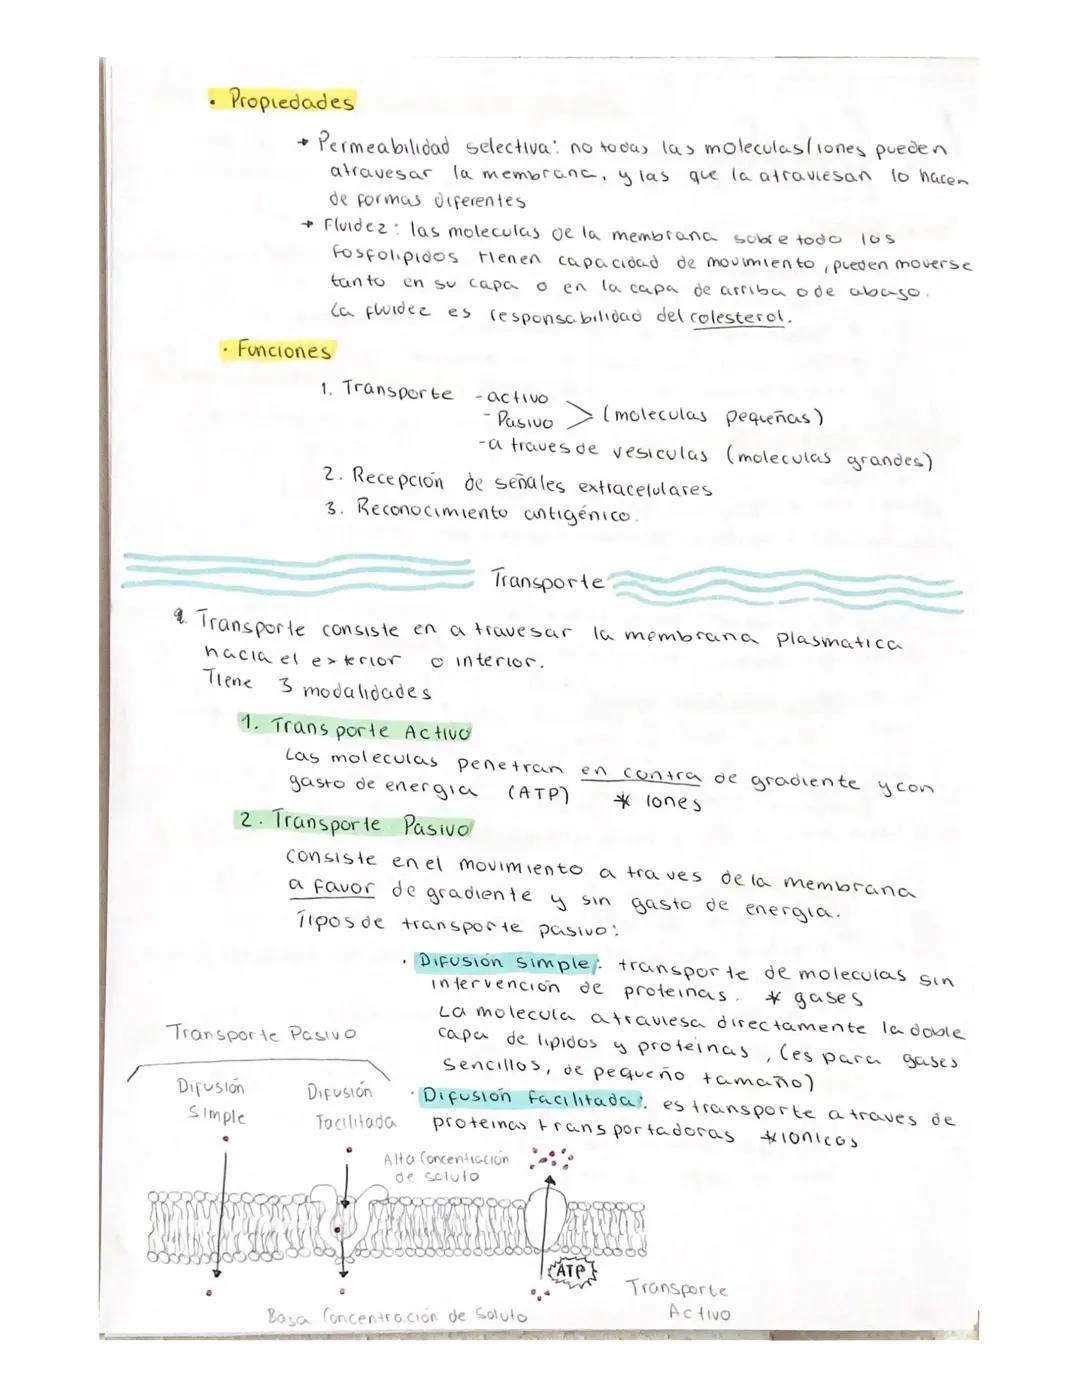 • Propiedades
→ Permeabilidad selectiva: no todas las moleculas/iones pueden
atravesar la membrana, y las que la atraviesan lo hacen
de formas diferentes
→ Fluidez: las moleculas de la membrana sobre todo los
fosfolipidos tienen capacidad de movimiento, pueden moverse
tanto en su capa o en la capa de arriba o de abajo.
La fluidez es responsabilidad del colesterol.
• Funciones
1. Transporte -activo
- Pasivo > (moleculas pequeñas)
-a traves de vesiculas (moleculas grandes)
2. Recepción de señales extracelulares
3. Reconocimiento antigénico.
Transporte
Transporte consiste en atravesar la membrana plasmatica
hacia el exterior o interior.
Tiene 3 modalidades
1. Transporte Activo
Las moleculas penetran en contra de gradiente y con
gasto de energia (ATP) * iones
2. Transporte Pasivo
consiste en el movimiento a traves de la membrana
a favor de gradiente y sin gasto de energia.
Tipos de transporte pasivo:
• Difusión simple: transporte de moleculas sin
intervención de proteinas. * gases
La molecula atraviesa directamente la doble
capa de lipidos y proteinas, (es para gases
sencillos, de pequeño tamaño)
• Difusión facilitada: es transporte a traves de
proteinas transportadoras *ionicos
Transporte Pasivo
Difusión
Simple
Difusión
Facilitada
Alta Concentración
de soluto
ATP
Transporte
Activo
Baja Concentración de Soluto